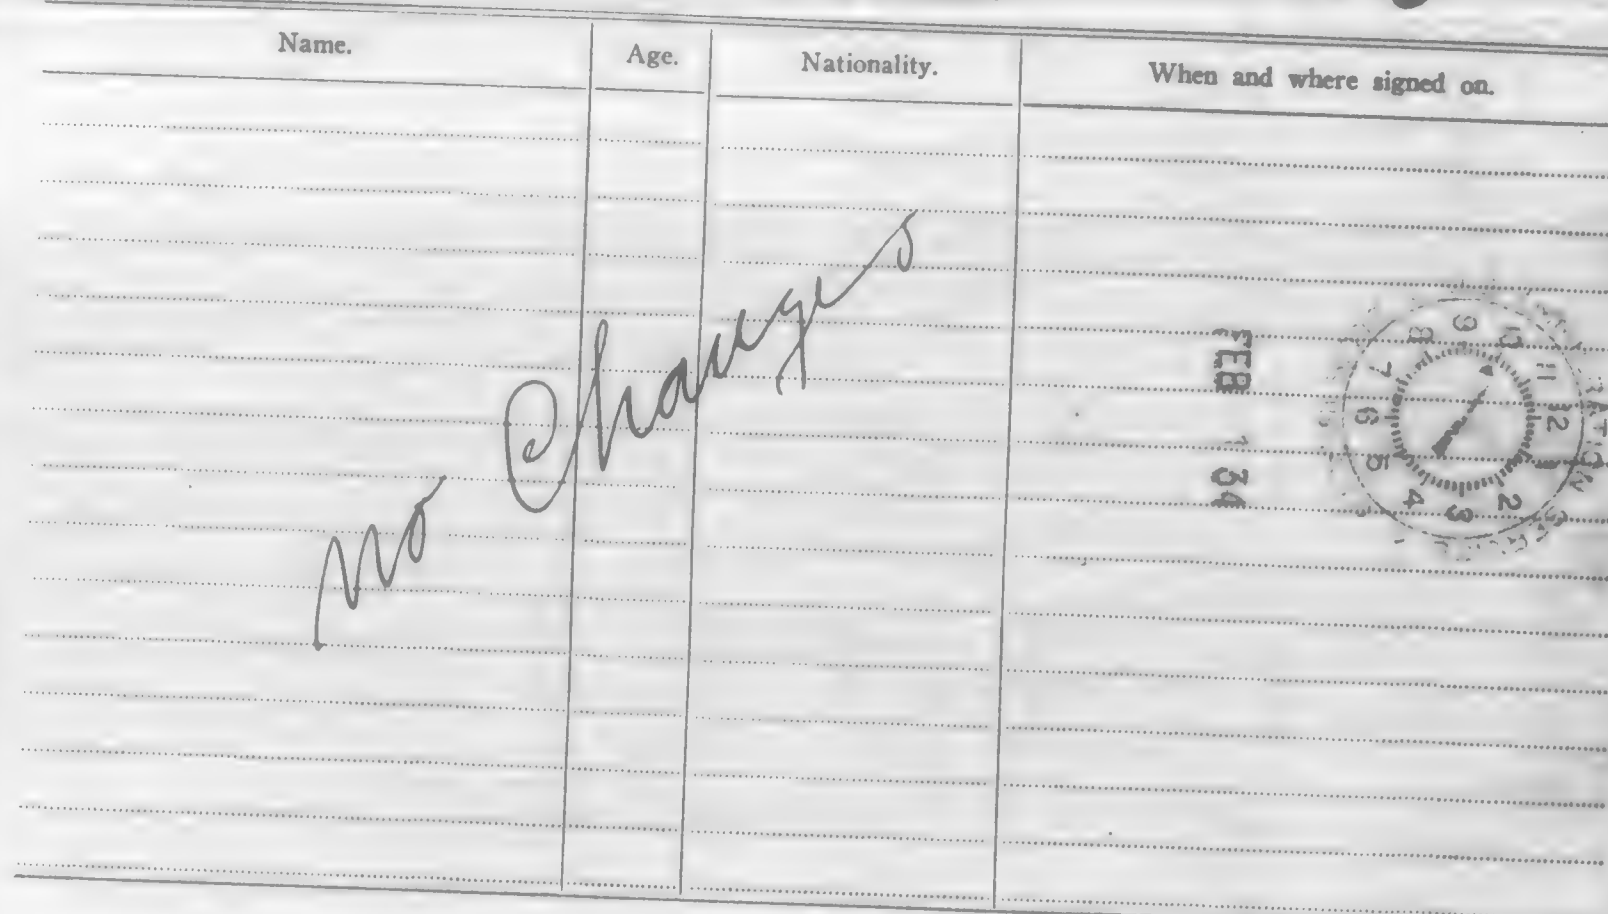 Name. Age. Nationality. When and where signed on.
No Changes
FEB 1 34
9 10 11 12 1 2 3 4 5 6 7 8